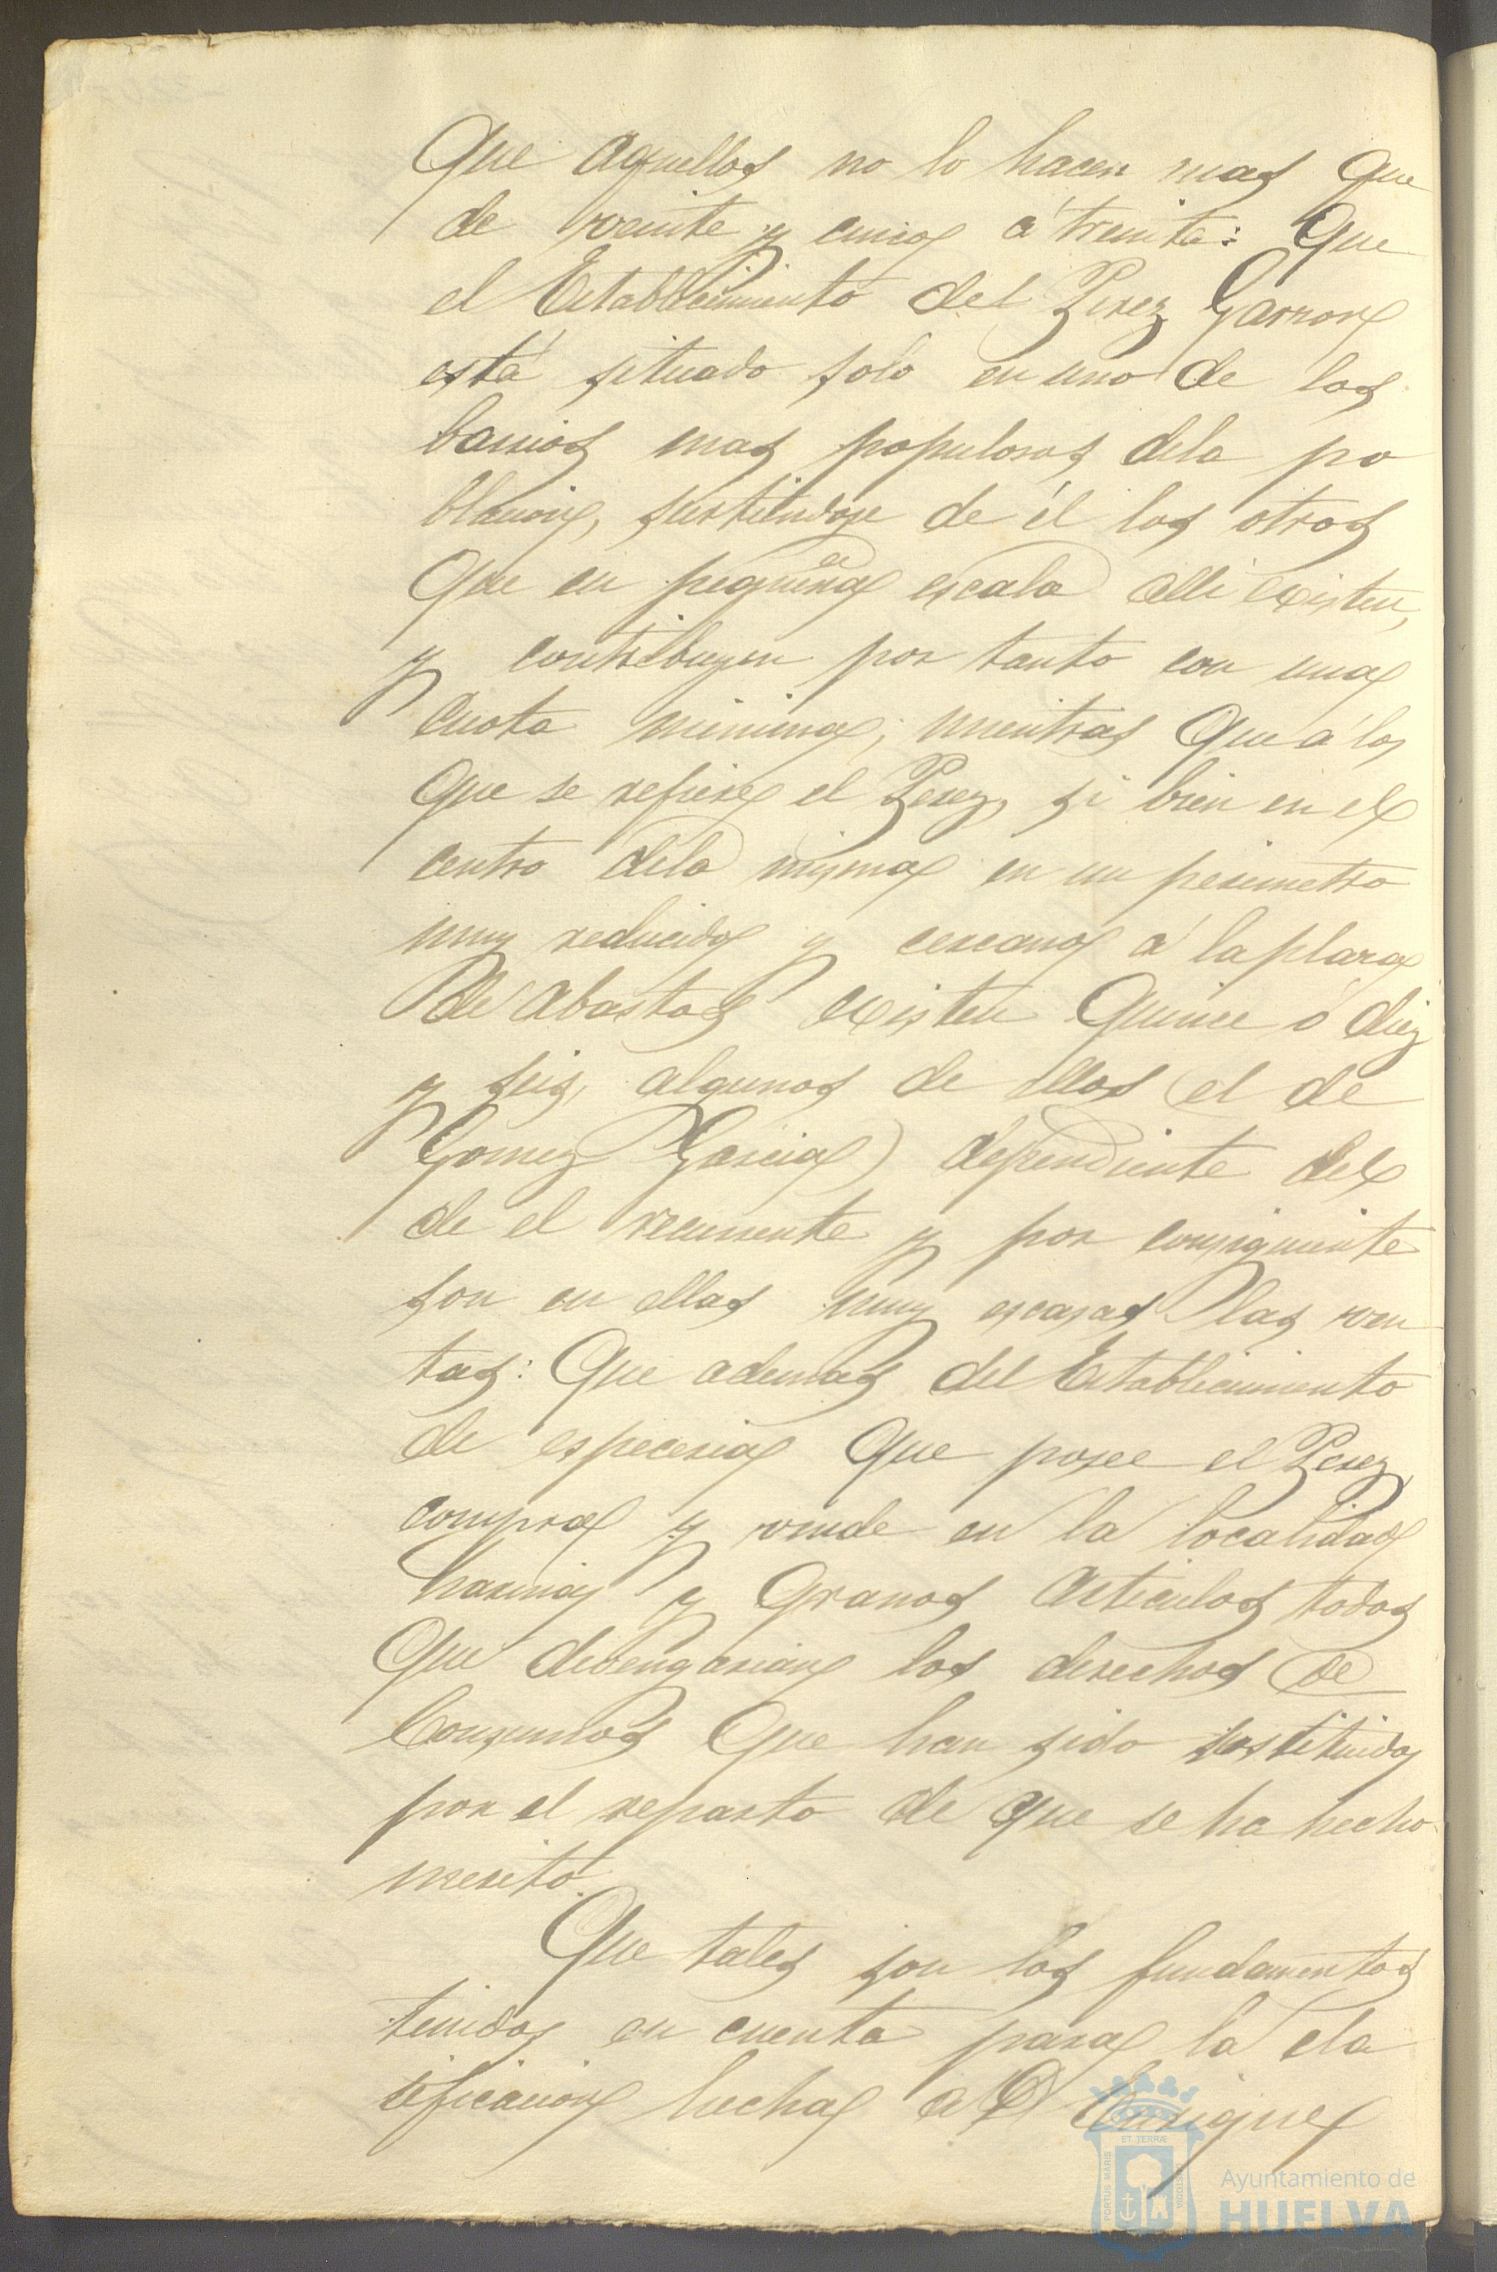 Que aquellos no lo hacen mas que
de veinte y cinco á treinta: Que
el Establecimiento del Perez Garzon
está situado solo en uno de los
barrios mas populosos dela po
blacion, surtiendose de él los otros
que en pequeña escala alli existen,
y contribuyen por tanto con una
cuota minima; mientras que á los
que se refiere el Perez, si bien en el
centro dela misma en un perimetro
muy reducido y cercano á la plaza
de Abastos existen quince ó diez
y seis, algunos de ellos (el de
Gomez Garcia) dependiente del
de el recurrente y por consiguiente
son en ellas muy escasas las ven
tas: Que ademas del Establecimiento
de especeria que posee el Perez,
compra y vende en la localidad
harinas y granos articulos todos
que devengarian los derechos de
Consumos que han sido sustituidos
por el reparto de que se ha hecho
merito.
Que tales son los fundamentos
tenidos en cuenta para la cla
sificacion hecha a D Enrique
Ayuntamiento de
HUELVA
PORTUS MARIS
ET TERRÆ
CUSTODIA